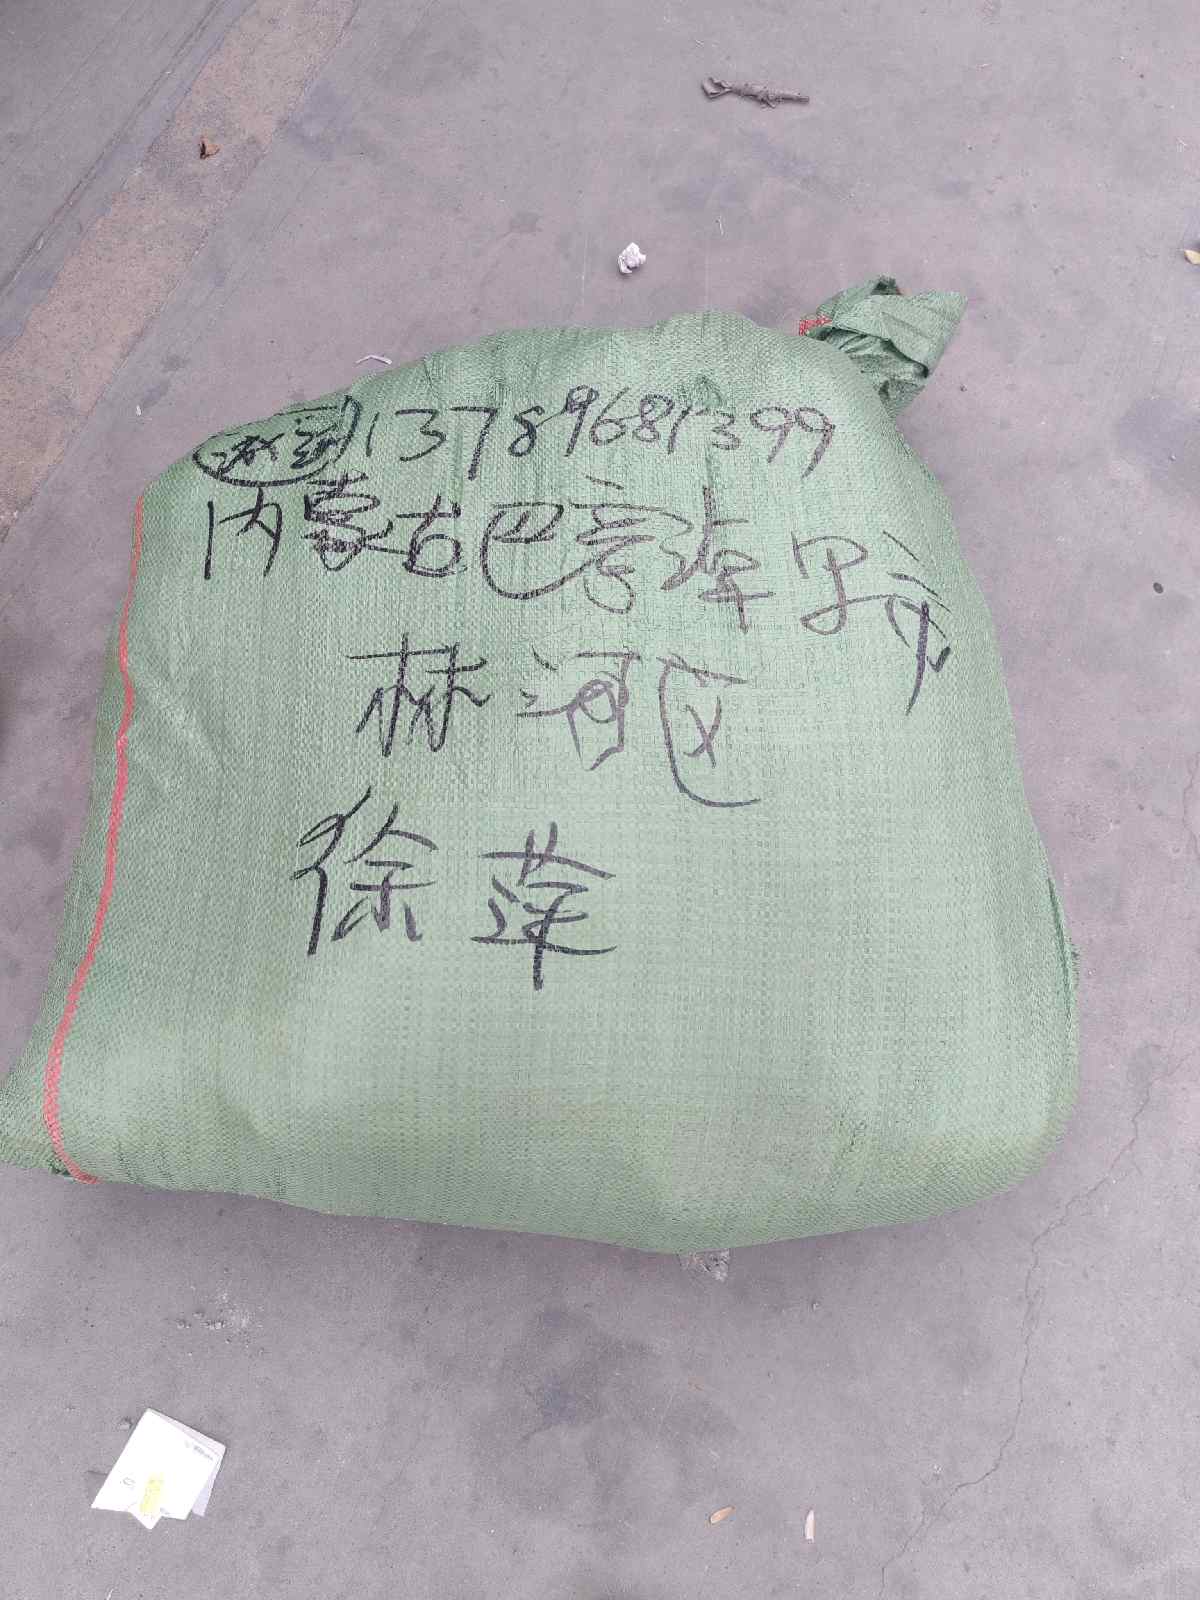 13789681399
内蒙古巴彦淖尔市
林河区
徐萍